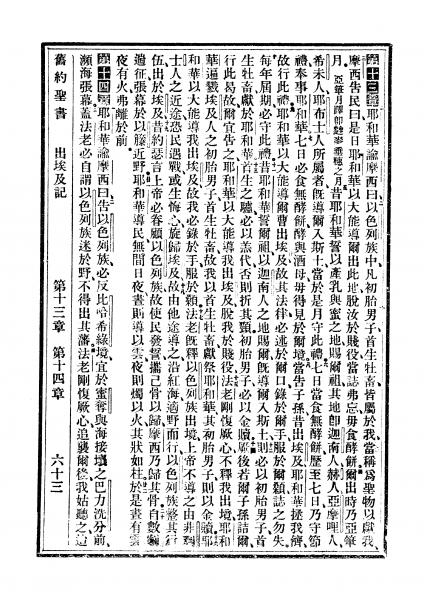 第十三章 耶和華諭摩西曰以色列族中凡初胎男子首生牡畜皆屬於我當稱爲聖物以獻我
摩西告民曰是日耶和華以大能導爾出此地脫汝於賤役當誌弗忘毋食酵餅爾出時乃亞筆
月 亞筆月譯即麰麥垂穗之月 昔耶和華誓以產乳與蜜之地賜爾祖其地卽迦南人赫人亞摩哩人
希未人耶布士人所屬者旣導爾入斯土當於是月守此禮七日當食無酵餅歷至七日乃守節
禮奉事耶和華七日必食無酵餅酵與酒母毋得見於爾境當告子孫昔出埃及耶和華拯我儕
故行此禮耶和華以大能導爾曹出埃及故其法律必述於爾口錄於爾手服於爾顙誌之勿失
每年屆期必守此禮昔耶和華誓爾祖以迦南人之地賜爾旣導爾入斯土則必以初胎男子首
生牡畜獻於耶和華首生之驢必以羔代否則折其頸初胎男子必以金贖厥後若爾子孫詰爾
行此曷故爾宜告之耶和華以大能導我出埃及脫我於賤役法老剛愎厥心不釋我出境耶和
華遍戮埃及人之初胎男子首生牡畜故我以首生牡畜獻祭耶和華其初胎男子則以金贖耶
和華以大能導我出埃及故必錄於手服於顙法老旣釋以色列族出境上帝不導之由非利
士人之近途恐民遇戰或生悔心旋歸埃及故由他途導之沿紅海適野而行以色列族整其行
伍出於埃及昔約瑟言上帝必眷顧以色列族故使民發誓攜己骨以歸摩西乃歸其骨自數割
遄征張幕於以膝近野耶和華導民無間日夜晝則導以雲夜則燭以火其狀如柱於是晝有雲
夜有火弗離於前
第十四章 耶和華諭摩西曰告以色列族必反比哈希綠境宜於蜜奪與海接壤之巴力洗分前
瀕海張幕蓋法老必自謂以色列族迷於野不得出其藩法老剛愎厥心追襲爾後我姑聽之迨
舊約聖書 出埃及記 第十三章 第十四章 六十三